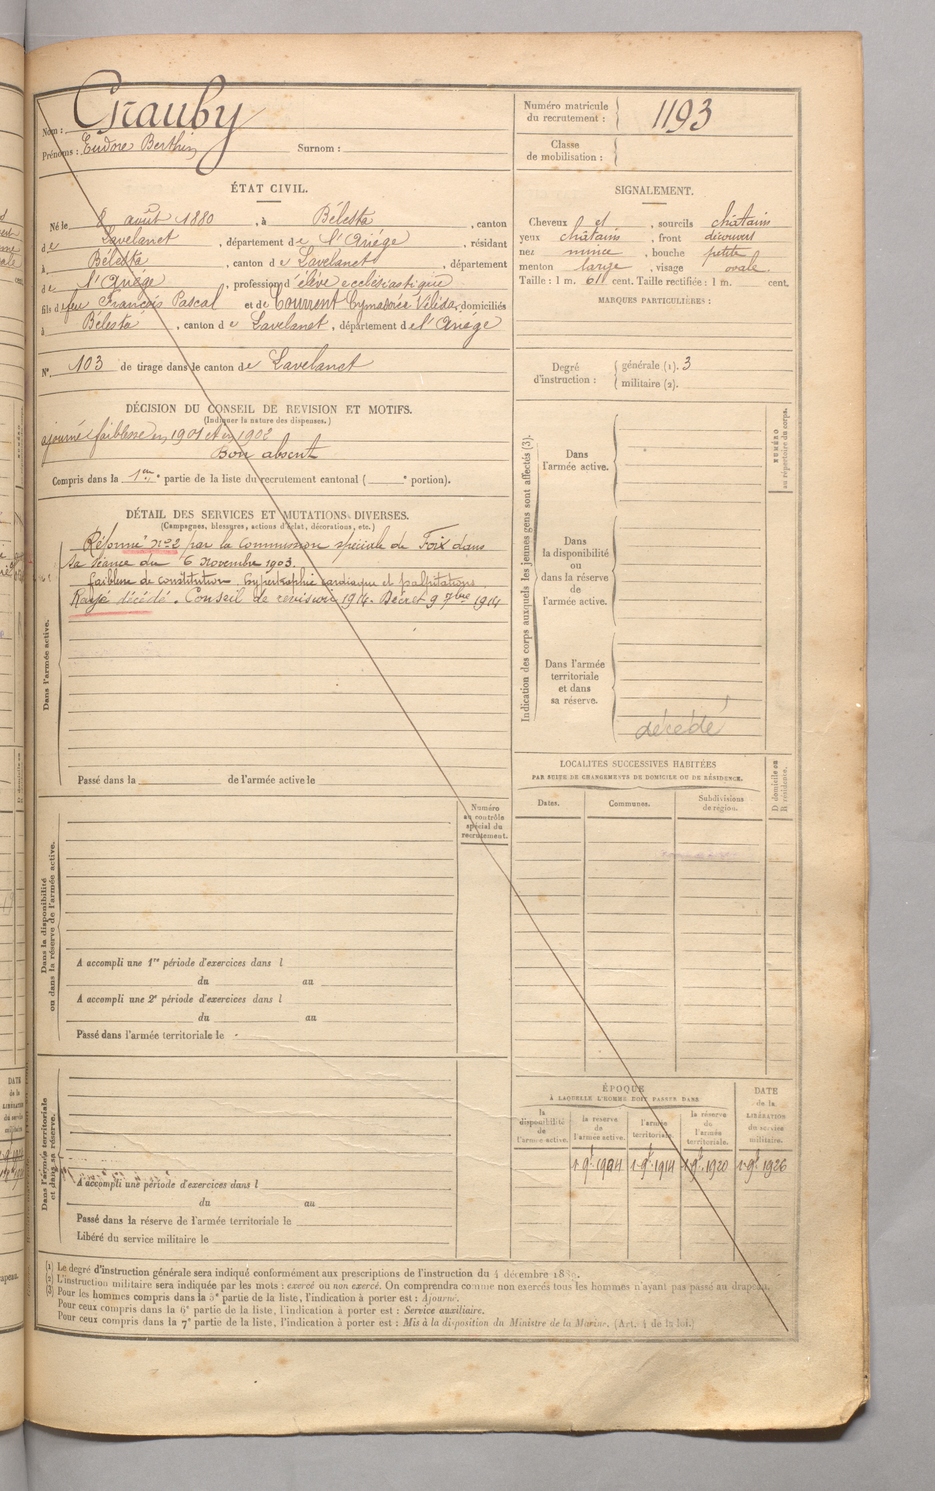 Nom : Crauby
Prénoms : Eudore Berthin Surnom :
Numéro matricule du recrutement : 1193
Classe de mobilisation :
ÉTAT CIVIL.
Né le 8 août 1880, à Bélesta, canton
de Lavelanet, département de l'Ariége, résidant
à Bélesta, canton de Lavelanet, département
de l'Ariége, profession d'élève ecclésiastique
fils de feu François Pascal et de Courrent Cymasrée Vélida, domiciliés
à Bélesta, canton de Lavelanet, département de l'Ariége
N° 103 de tirage dans le canton de Lavelanet
SIGNALEMENT.
Cheveux et, sourcils châtains
yeux châtains, front découvert
nez mince, bouche petite
menton large, visage ovale.
Taille : 1 m. 611 cent. Taille rectifiée : 1 m. cent.
MARQUES PARTICULIÈRES :
Degré d'instruction : générale (1). 3
militaire (2).
DÉCISION DU CONSEIL DE REVISION ET MOTIFS.
(Indiquer la nature des dispenses.)
ajourné faiblesse en 1901 et en 1902
Bon absent
Compris dans la 1ère partie de la liste du recrutement cantonal ( e portion).
DÉTAIL DES SERVICES ET MUTATIONS DIVERSES.
(Campagnes, blessures, actions d'éclat, décorations, etc.)
Dans l'armée active.
Réformé n°2 par la Commission spéciale de Foix dans
sa séance du 6 novembre 1903.
faiblesse de constitution, hypertrophie cardiaque et palpitations.
Rayé décédé. Conseil de révision 1914. Décret 9 7bre 1914
Passé dans la de l'armée active le
Indication des corps auxquels les jeunes gens sont affectés (3).
Dans l'armée active.
Dans la disponibilité ou dans la réserve de l'armée active.
Dans l'armée territoriale et dans sa réserve.
décédé
NUMÉRO au répertoire du corps.
LOCALITÉS SUCCESSIVES HABITÉES
PAR SUITE DE CHANGEMENTS DE DOMICILE OU DE RÉSIDENCE.
Dates. Communes. Subdivisions de région.
D domicile ou R résidence.
Numéro au contrôle spécial du recrutement.
Dans la disponibilité ou dans la réserve de l'armée active.
A accompli une 1re période d'exercices dans l
du au
A accompli une 2e période d'exercices dans l
du au
Passé dans l'armée territoriale le
Dans l'armée territoriale et dans sa réserve.
A accompli une période d'exercices dans l
du au
Passé dans la réserve de l'armée territoriale le
Libéré du service militaire le
ÉPOQUE
À LAQUELLE L'HOMME DOIT PASSER DANS
la disponibilité de l'armée active. la réserve de l'armée active. l'armée territoriale. la réserve de l'armée territoriale.
DATE de la LIBÉRATION du service militaire.
1 9bre 1904 1 9bre 1914 1 9bre 1920 1 9bre 1926
(1) Le degré d'instruction générale sera indiqué conformément aux prescriptions de l'instruction du 4 décembre 1889.
(2) L'instruction militaire sera indiquée par les mots : exercé ou non exercé. On comprendra comme non exercés tous les hommes n'ayant pas passé au drapeau.
(3) Pour les hommes compris dans la 5e partie de la liste, l'indication à porter est : Ajourné.
Pour ceux compris dans la 6e partie de la liste, l'indication à porter est : Service auxiliaire.
Pour ceux compris dans la 7e partie de la liste, l'indication à porter est : Mis à la disposition du Ministre de la Marine. (Art. 4 de la loi.)